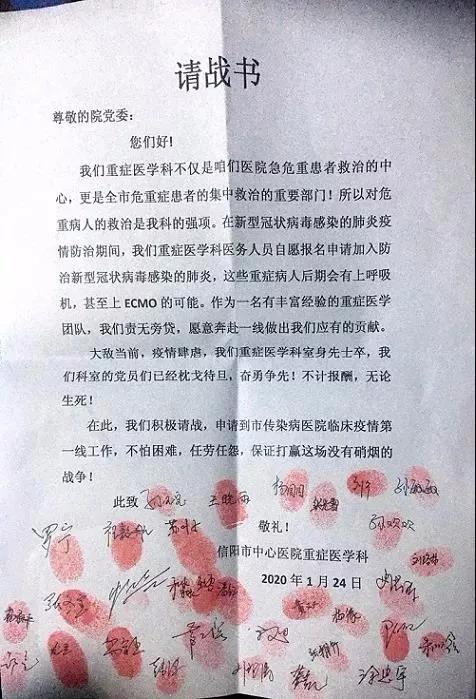 请战书
尊敬的院党委：
您们好！
我们重症医学科不仅是咱们医院急危重患者救治的中
心，更是全市危重症患者的集中救治的重要部门！所以对危
重病人的救治是我科的强项。在新型冠状病毒感染的肺炎疫
情防治期间，我们重症医学科医务人员自愿报名申请加入防
治新型冠状病毒感染的肺炎，这些重症病人后期会有上呼吸
机，甚至上 ECMO 的可能。作为一名有丰富经验的重症医学
团队，我们责无旁贷，愿意奔赴一线做出我们应有的贡献。
大敌当前，疫情肆虐，我们重症医学科室身先士卒，我
们科室的党员们已经枕戈待旦，奋勇争先！不计报酬，无论
生死！
在此，我们积极请战，申请到市传染病医院临床疫情第
一线工作，不怕困难，任劳任怨，保证打赢这场没有硝烟的
战争！
此致
敬礼！
罗宁
信阳市中心医院重症医学科
2020 年 1 月 24 日